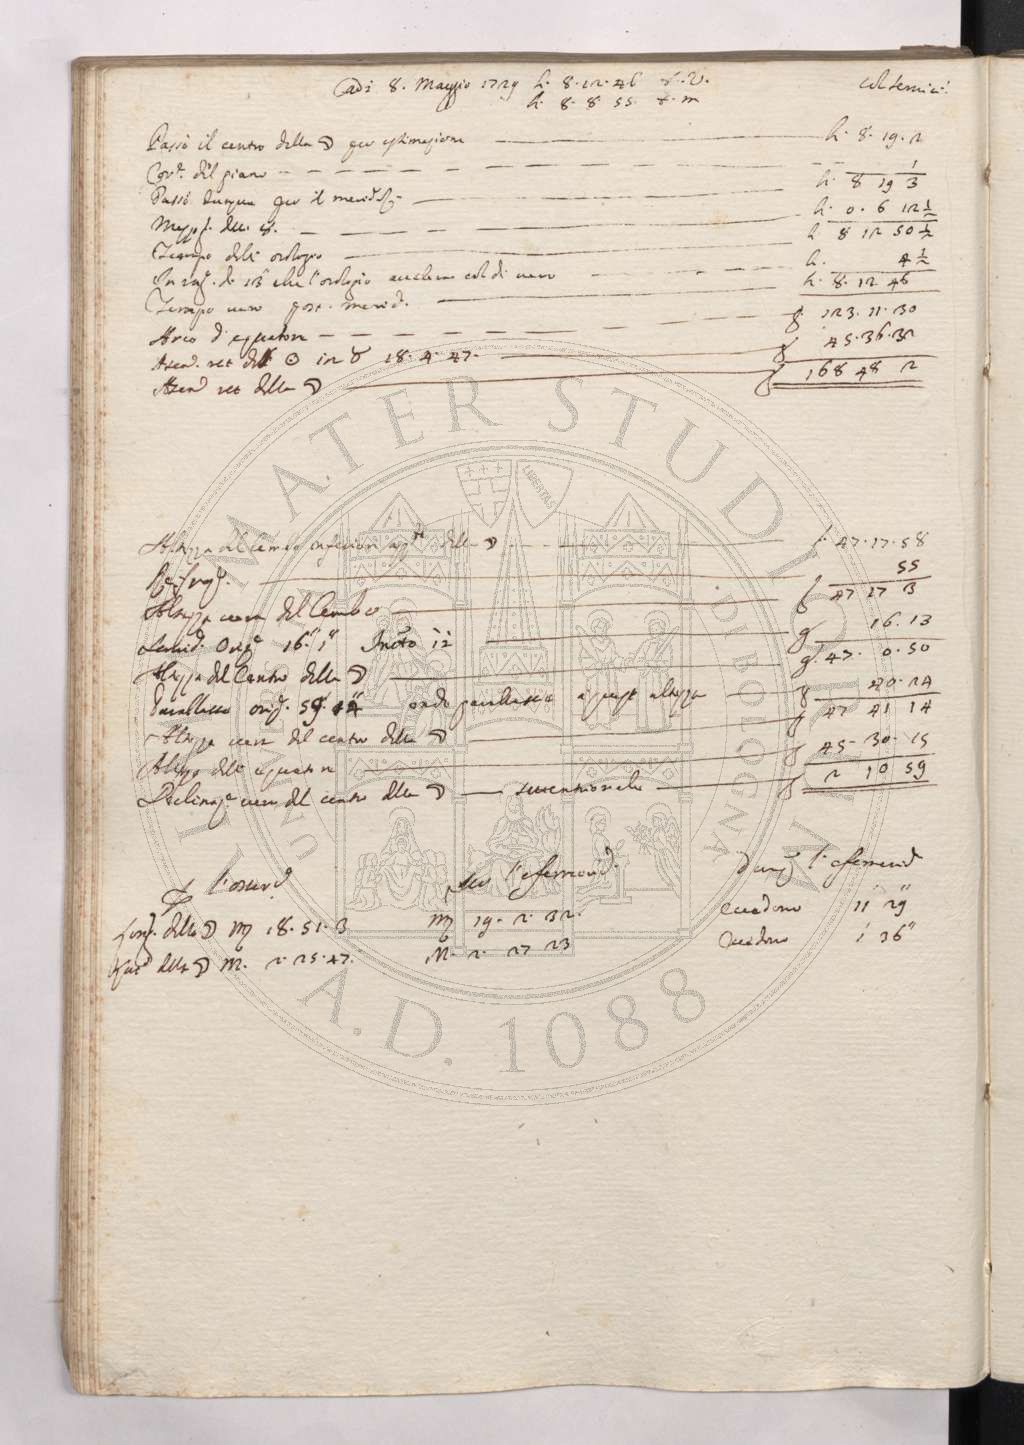 Adi 8. Maggio 1729 h. 8. 12. 46 t. V. col semici:
h. 8. 8. 55. t. m
Passò il centro della ☽ per estimazione h. 8. 19. 2
Corr.e del piano 1
Passò dunque per il merid. h. 8 19 3
h. 0. 6 12 1/2
Tempo dell' orologio h 8 12 50 1/2
In rag. di che l'orologio col di h. 4 1/2
Tempo vero post. merid. h. 8. 12 46
Arco d'equatore g 123. 11. 30
Ascen. ret del ☉ in ♉ 18. 4. 47. g 45. 36. 32
Ascen ret della ☽ g 168 48 2
Altezza del lembo inferiore app.te della ☽ g. 47. 17. 58
Refraz. 55
Altezza vera del lembo g 47 17 3
Semid. oriz.e 16. 1 12 g 16. 13
Altezza del Centro della ☽ g. 47. 0. 50
Parallasse oriz. 59. 14 onde parallasse a questa altezza g 40. 24
Altezza vera del centro della ☽ g 47 41 14
Altezza dell' equatore g 45. 30. 15
Declinaz.e vera del centro della ☽ settentrionale g 2 10 59
l'osserv. l'efemerid. l'efemerid
Long. della ☽ ♍ 18. 51. 3 ♍ 19. 2. 32. eccedono 11' 29"
Lat. della ☽ M. 2. 25. 47. M. 2. 27 23 eccedono 1' 36"
ALMA MATER STUDIORUM
UNIVERSITÀ DI BOLOGNA
LIBERTAS
A.D. 1088